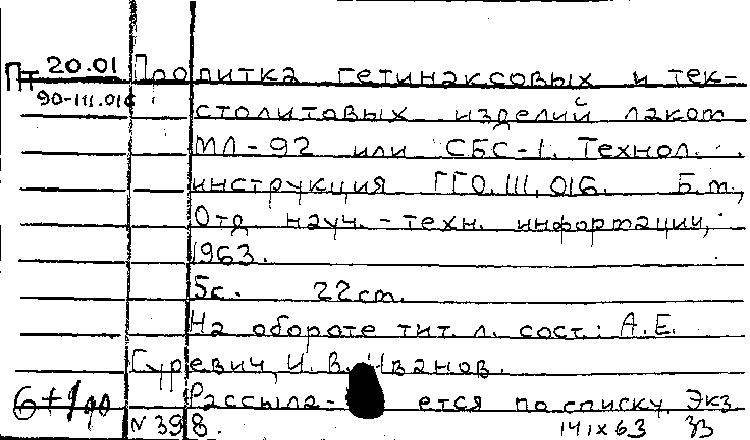 Пт 20.01 Пропитка гетинаксовых и тек-
90-111.016
столитовых изделий лаком
МЛ-92 или СБС-1. Технол.
инструкция ГГО.111.016. Б.м.,
Отд. науч.-техн. информации,
1963.
5с. 22см.
На обороте тит. л. сост.: А.Е.
Гуревич, И.В. Иванов.
Рассыла- ется по списку. Экз
N 398.
141х63